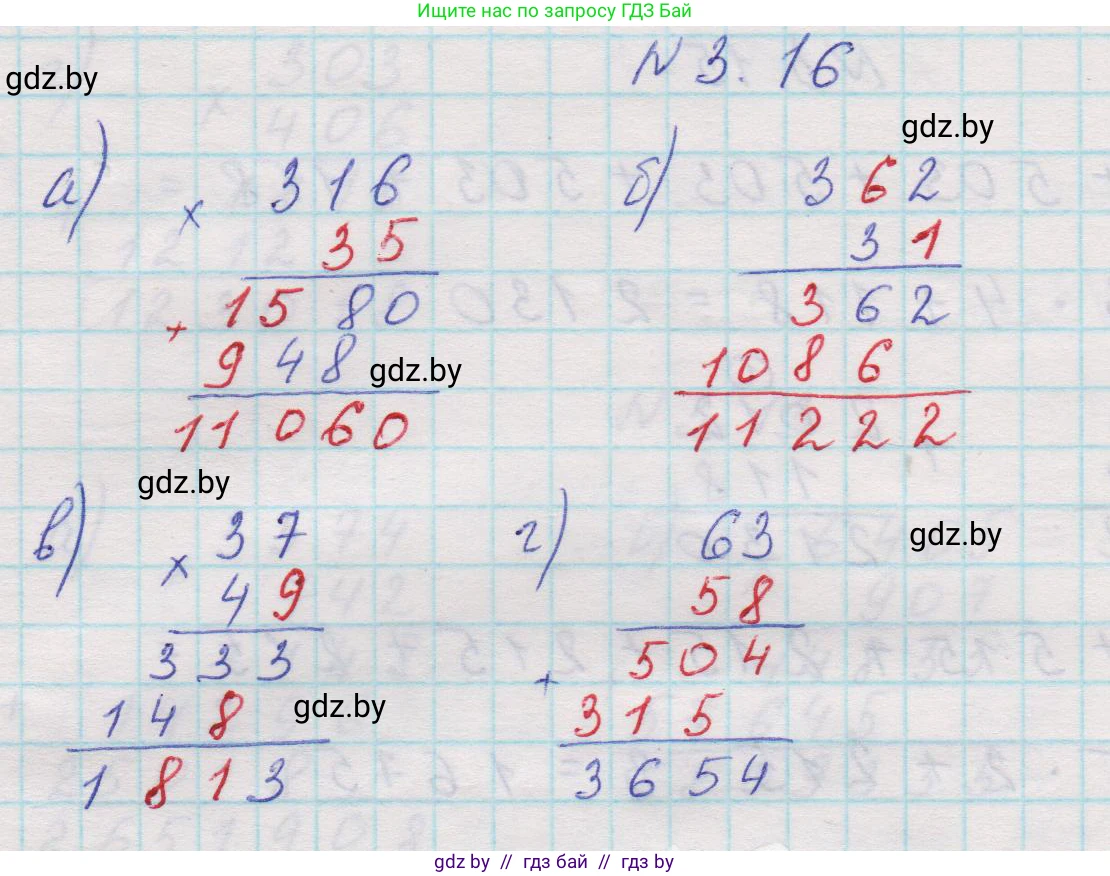 Ищите нас по запросу ГДЗ Бай
gdz.by
N 3.16
gdz.by
а)
× 316
35
+ 1580
948
gdz.by
11060
б)
362
31
362
1086
11222
gdz.by
в)
× 37
49
333
148
gdz.by
1813
г)
63
gdz.by
58
+ 504
315
3654
gdz.by // гдз бай // гдз by